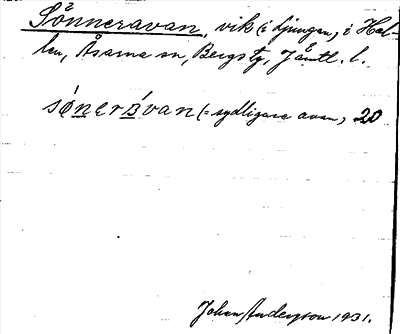 Sönneravan, vik (i Ljungan, i Hal-
len, Åsarna sn, Bergs tg, Jämtl. l.
sǿnerávan (= sydligare avan, 20
Johan Anderson 1931.